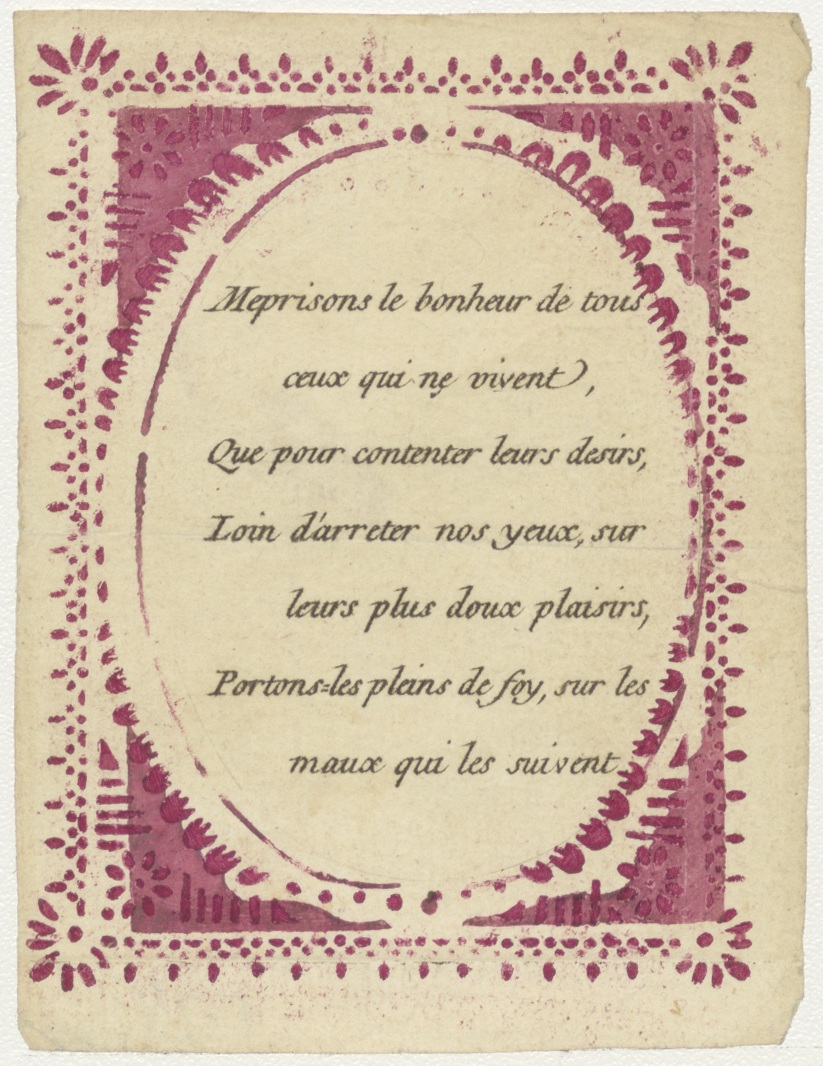 Meprisons le bonheur de tous
ceux qui ne vivent,
Que pour contenter leurs desirs,
Loin d'arreter nos yeux, sur
leurs plus doux plaisirs,
Portons=les pleins de foy, sur les
maux qui les suivent.